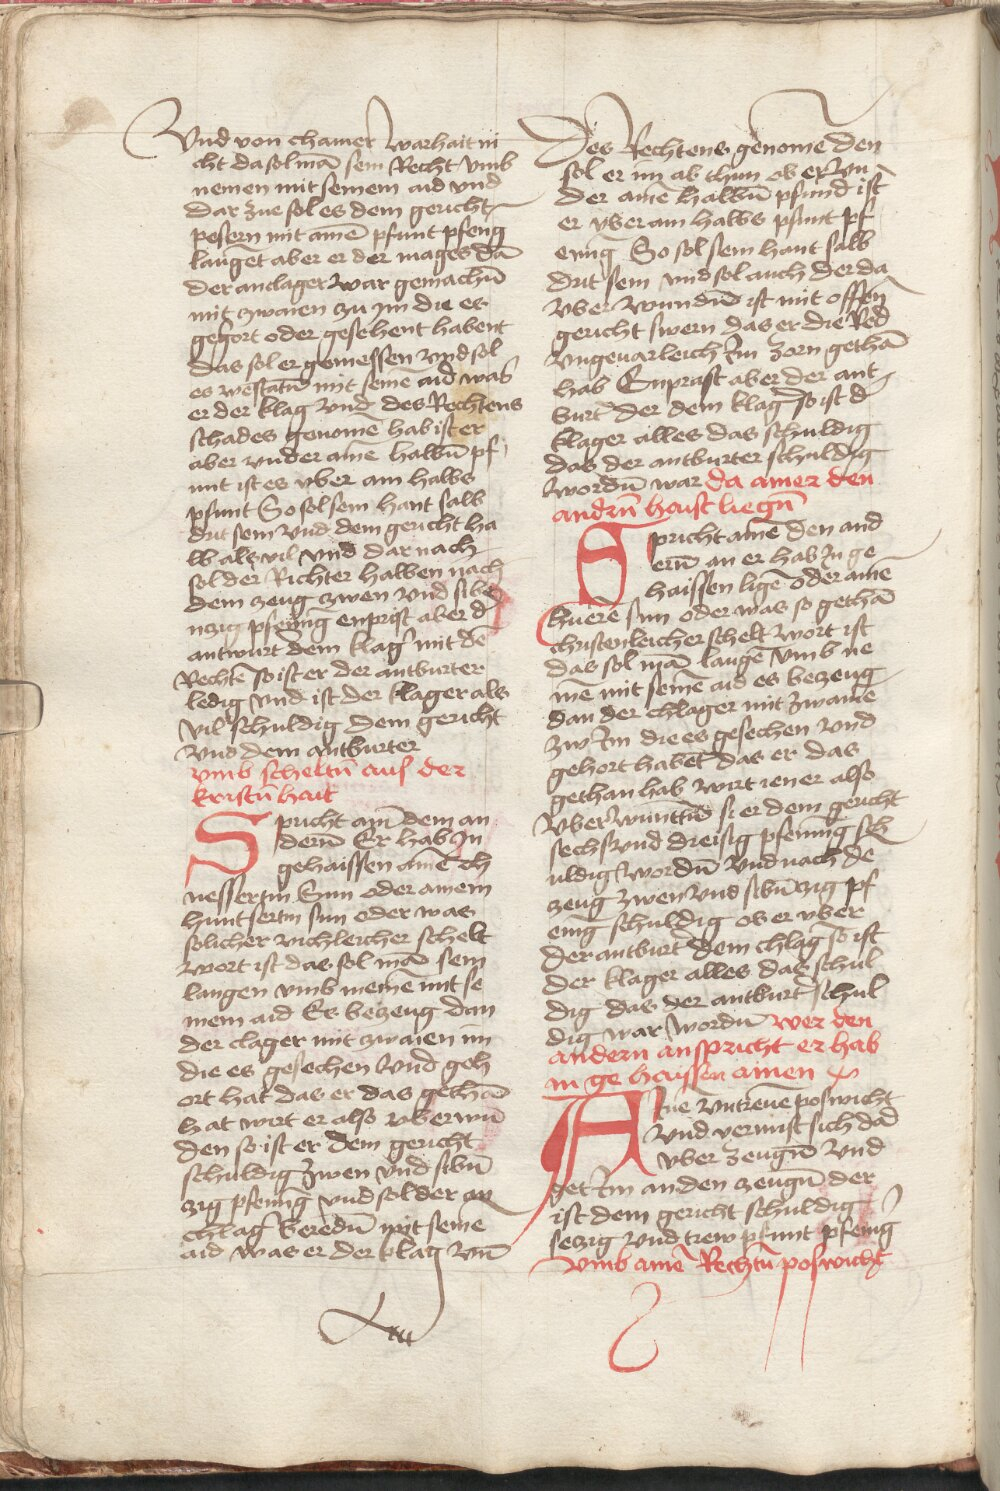 Vnd von chainer warhait ni
cht da sol mā sein Recht vmb
nemen mit seinem aid vnd
dar zue sol es dem gericht
pesern mit ainē pfunt pfeng
lauget aber er der mages dā
der anclager war gemachū
mit zwaien zu im die es
gehort oder gesehent habent
das sol er geniessen vnd sol
es westatū mit seinē aid was
er der klag vnd des Rechtens
schades genomē hab ist er
aber vnder ainē halbū pf
unt ist es vber ain halbs
pfunt So sol sein hant salb
drit sein vnd dem gericht ha
lb als vil vnd dar nach
sol der Richter halben nach
dem zeug zwen vnd sibē
nzig pfenīg enprist aber d
antwurt dem klag mit dē
Rechtē so ist er der antburter
ledig vnd ist der klager als
vil schuldig dem gericht
vnd dem antburter
vmb scheltū aus der
kristū hait
Spricht ainē dem an
derū Er hab In
gehaissen ainē zh
uessertin Sun oder ainem
hunt sertin sun oder was
solicher vichleicher schelt
wort ist das sol mā sein
laugen vmb nemē mit se
inem aid Es bezeug dan
der clager mit zwaien im
die es gesechen vnd geh
ort hat das er das gethā
hat wirt er also vberwū
den so ist er dem gericht
schuldig zwen vnd sibū
zig pfenīg vnd sol der an
chlag keredū mit seinē
aid was er der klag vnd
Des Rechtens genomē den
sol er im ab thun ob er vn
der ainē halbū pfund ist
er vber ain halbs pfunt pf
enīg So sol sein hant salb
drit sein vnd sol auch der da
vber wundū ist mit offen
gericht swern das er die Red
vngeuarleich Im zorn gethā
hab Enprast aber der ant
burt der dem klag so ist d
klager alles das schuldig
das der antburter schuldig
wordū war da ainer den
andrū haist liegū
Spricht ainē den and
erū an er hab In ge
haissen ligē oder ainē
huerē sun oder was so gethā
christenleicher schelt wort ist
das sol mā laugē vmb ne
mē mit seinē aid es bezeug
dan der chlager mit zwainē
zw Im die es gesechen vnd
gehort habēt das er das
gethan hab wirt iener also
vberwuntū si er dem gericht
sechs vnd dreisig pfennīg sch
uldig wordū vnd nach dē
zeug zwen vnd sibūzig pf
enīg schuldig ob er vber
der antburt dem chlag so ist
der klager alles das schul
dig das der antburt schul
dig war wordū wer den
andern anspricht er hab
in ge haissen ainen
Ainē vntreuē poswicht
vnd vermist sich dā
vber zeugū vnd
get Im an den zeugū der
ist dem gericht schuldig
sezig vnd trew pfunt pfenīg
vmb ainē Rechtū poswicht